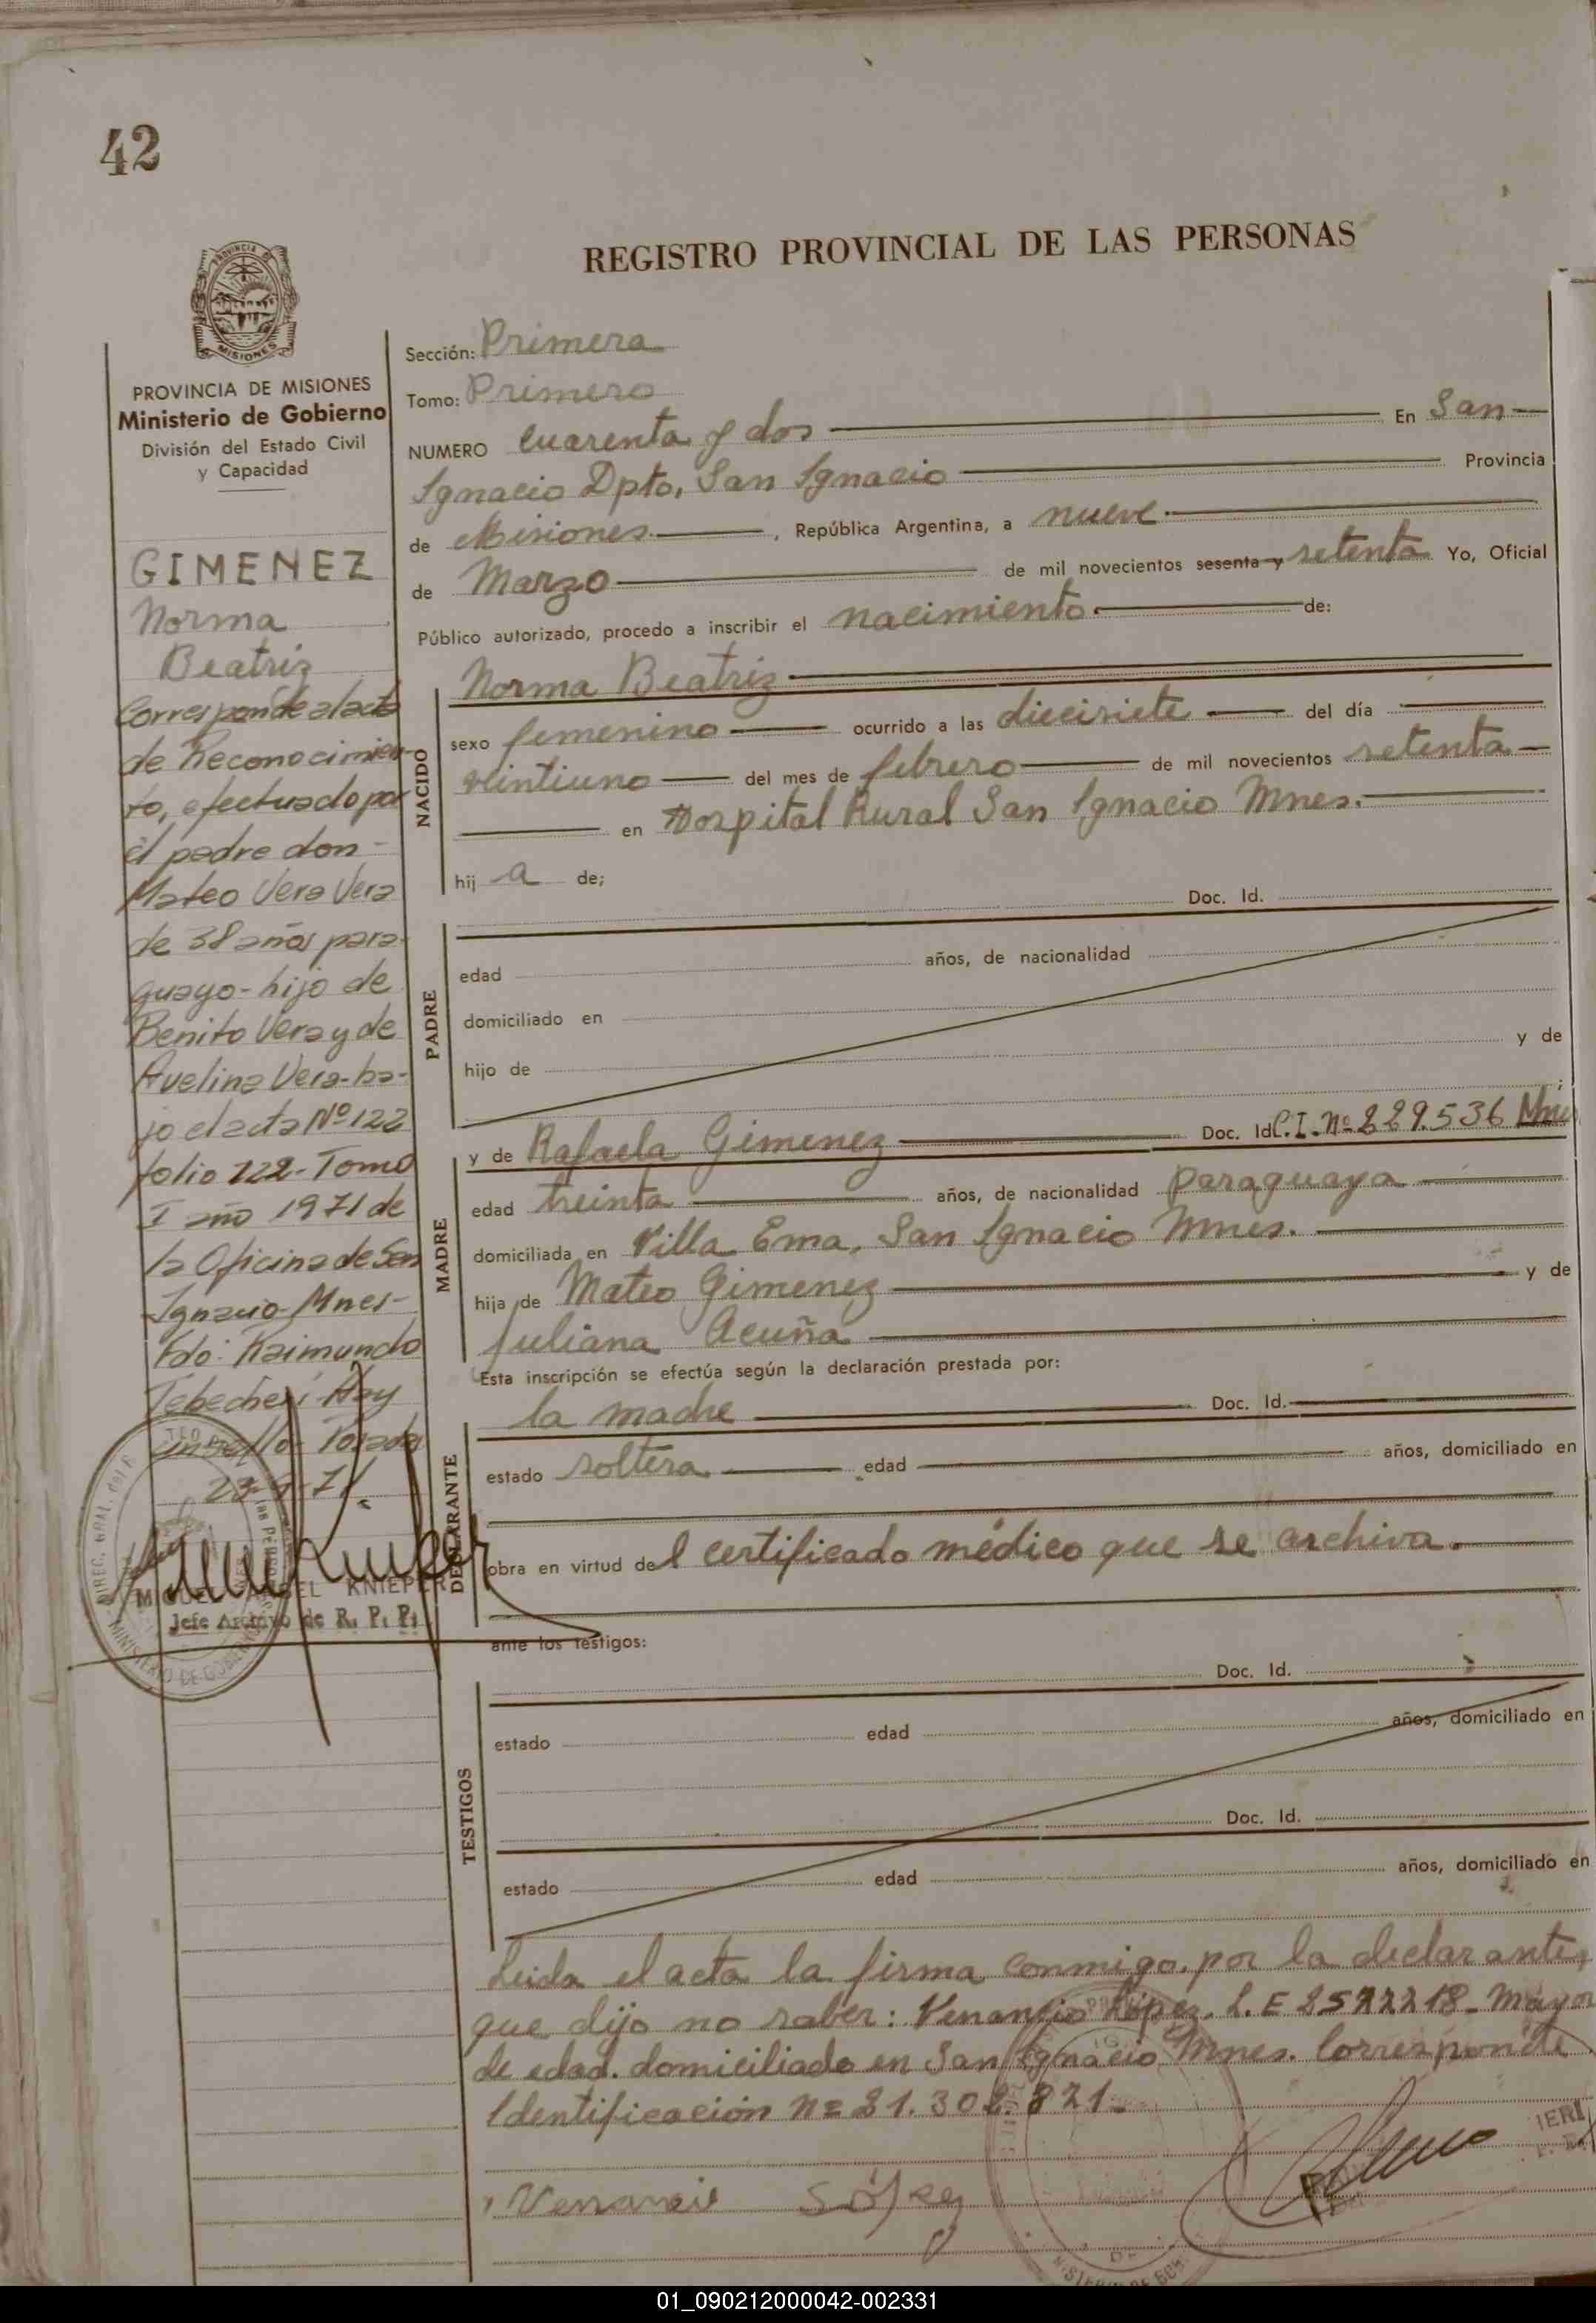 42
REGISTRO PROVINCIAL DE LAS PERSONAS
PROVINCIA MISIONES
PROVINCIA DE MISIONES
Ministerio de Gobierno
División del Estado Civil
y Capacidad
GIMENEZ
Norma
Beatriz
Corresponde al acta
de Reconocimien-
to, efectuado por
el padre don -
Mateo Vera Vera
de 38 años para-
guayo - hijo de
Benito Vera y de
Avelina Vera - ba-
jo el acta Nº 122
folio 122 - Tomo
I año 1971 de
la Oficina de San
Ignacio - Mnes -
Fdo: Raimundo
Hay
un sello - Posadas
MIGUEL ANGEL KNIEPER
Jefe Archivo de R. P. P.
Sección: Primera
Tomo: Primero
NUMERO Cuarenta y dos En San
Ignacio Dpto, San Ignacio Provincia
de Misiones , República Argentina, a nueve
de Marzo de mil novecientos sesenta y setenta Yo, Oficial
Público autorizado, procedo a inscribir el nacimiento de:
NACIDO
Norma Beatriz
sexo femenino ocurrido a las diecisiete del día
veintiuno del mes de febrero de mil novecientos setenta
en Hospital Rural San Ignacio Mnes.
hij a de;
PADRE
Doc. Id.
edad años, de nacionalidad
domiciliado en
hijo de y de
;
MADRE
y de Rafaela Gimenez Doc. Id C.I. Nº 229.536 Mnes
edad treinta años, de nacionalidad paraguaya
domiciliada en Villa Ema, San Ignacio Mnes.
hija de Mateo Gimenez y de
Juliana Acuña
Esta inscripción se efectúa según la declaración prestada por:
DECLARANTE
la madre Doc. Id.
estado soltera edad años, domiciliado en
obra en virtud del certificado médico que se archiva.
ante los testigos:
TESTIGOS
Doc. Id.
estado edad años, domiciliado en
Doc. Id.
estado edad años, domiciliado en
Leida el acta la firma conmigo. por la declarante,
que dijo no saber: Venancio López. L.E mayor
de edad. domiciliado en San Ignacio Mnes. Corresponde
Identificación Nº 21.302.821.
Venancio López
01_090212000042-002331